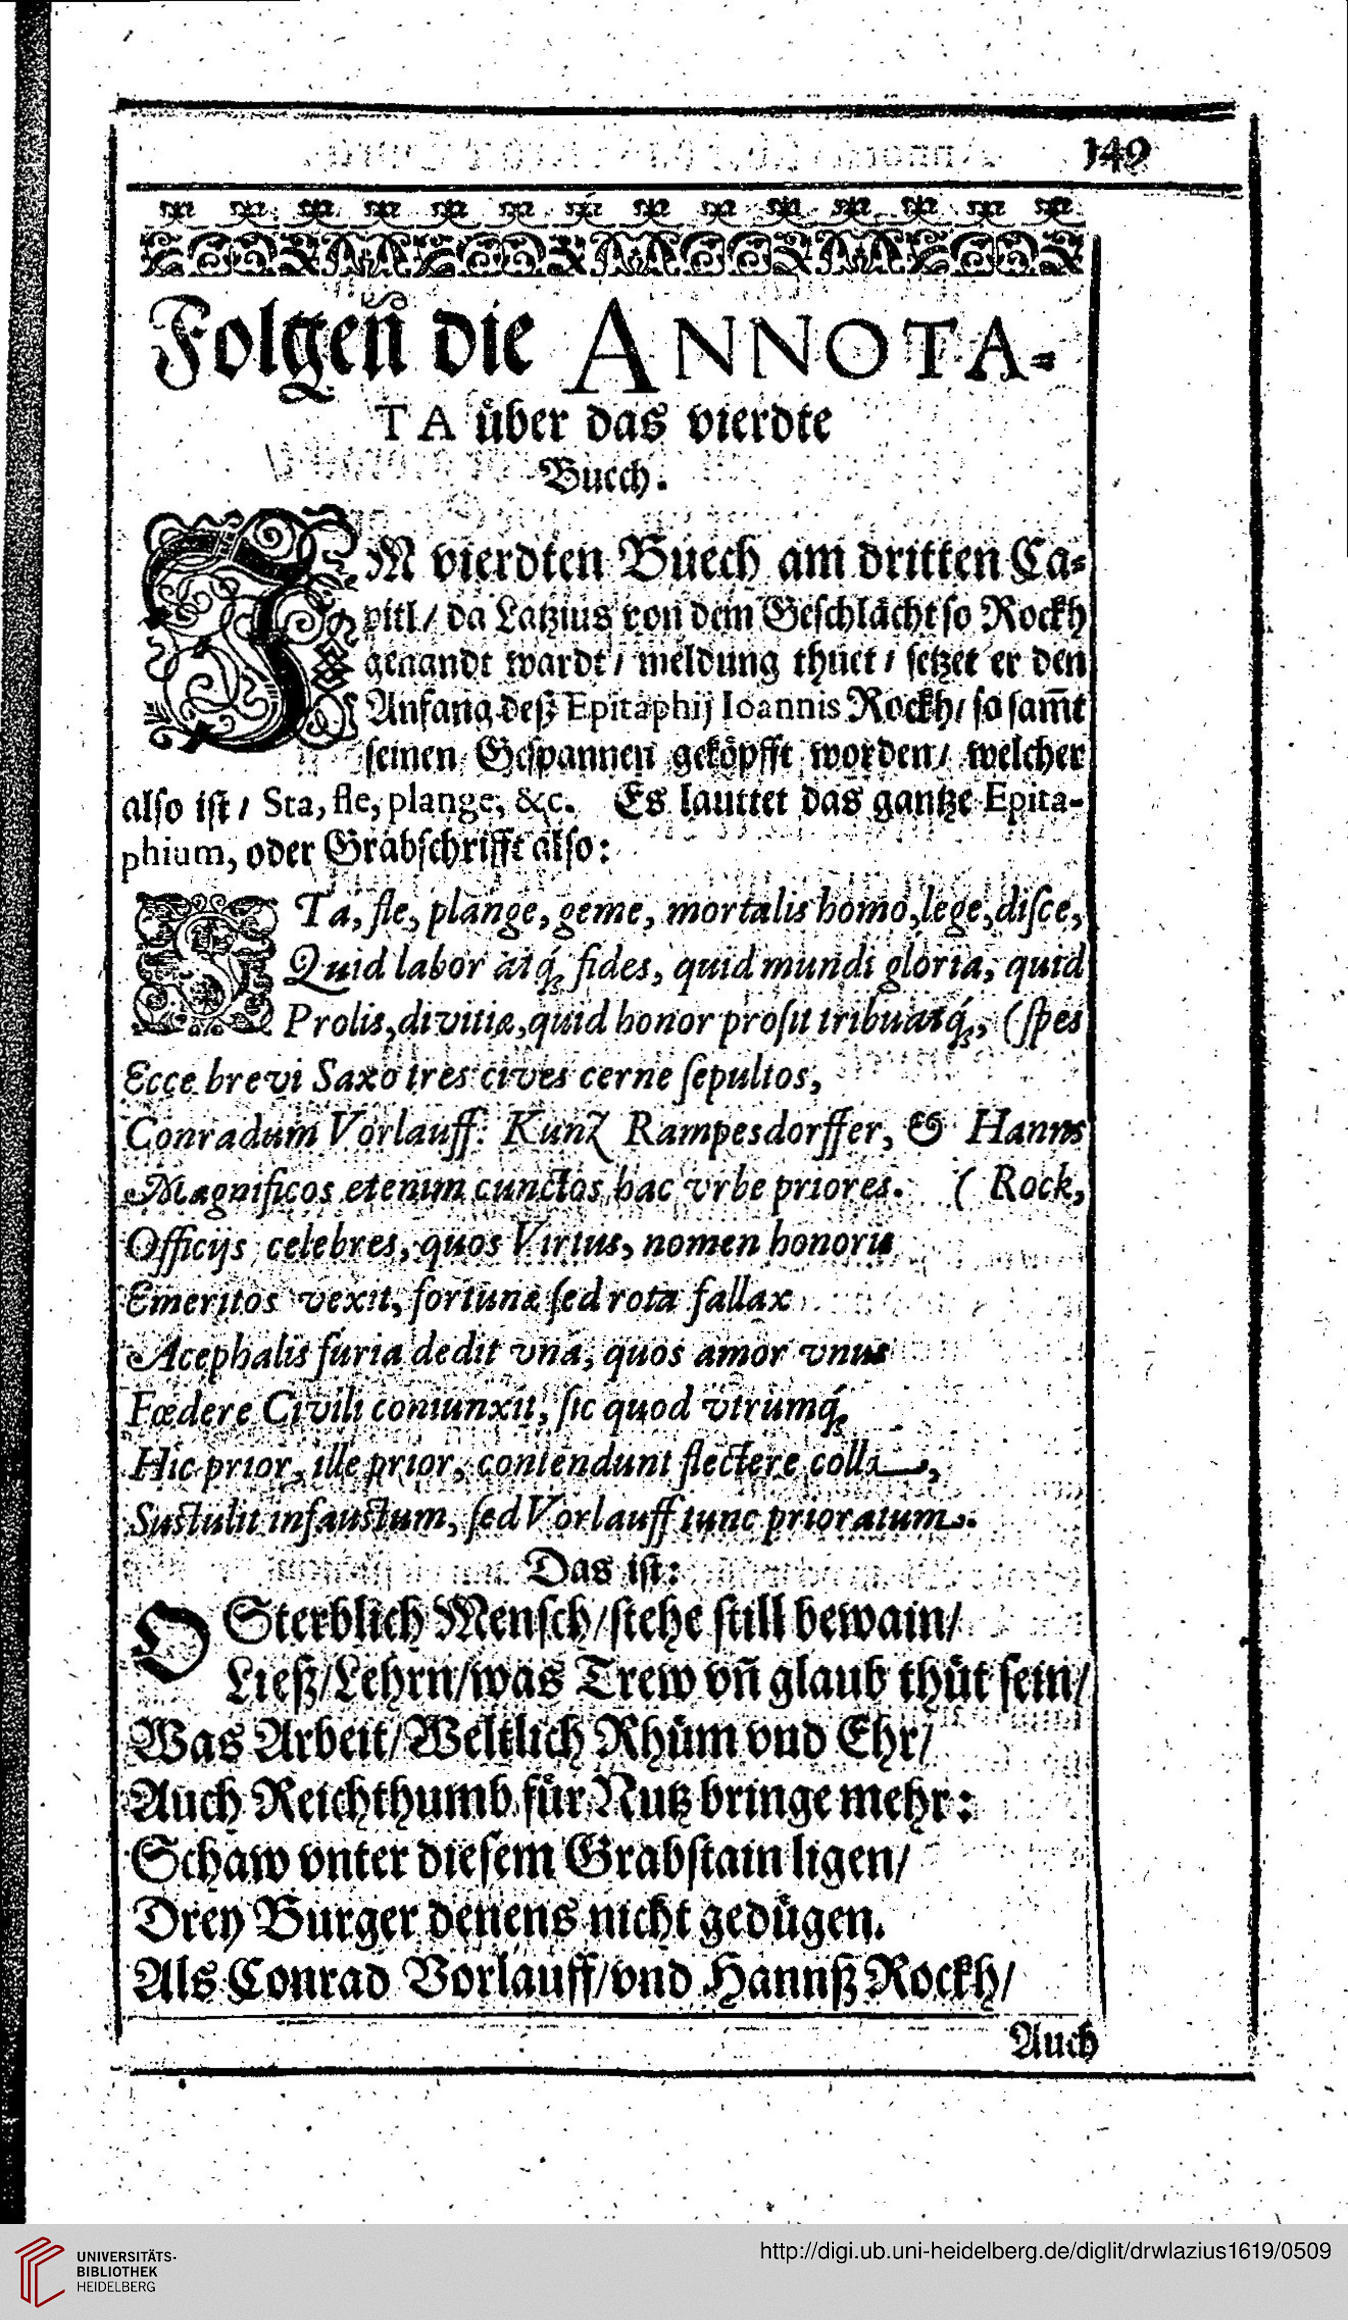 149
Folgen die ANNOTA-
TA uͤber das vierdte
Buech.
IM vierdten Buech am dritten Ca-
pitl/ da Latzius von dem Geſchlaͤcht ſo Rockh
genandt wardt/ meldung thuet/ ſetzet er den
Anfang deß Epitaphij Ioannis Rockh/ ſo sam̃t
ſeinen Geſpannen gekoͤpfft worden/ welcher
alſo iſt/ Sta, fle, plange, &c. Es lauttet das gantze Epita-
phium, oder Grabſchrifft alſo:
STa, fle, plange, geme, mortalis homo, lege, diſce,
Quid labor atq́; fides, quid mundi gloria, quid
Prolis, divitiæ, quid honor proſit tribuatq́;, (ſpes
Ecce brevi Saxo tres cives cerne ſepultos,
Conradum Vorlauff: Kunz Rampesdorffer, & Hanns
Magnificos etenim cunctos hac vrbe priores. ( Rock,
Officijs celebres, quos Virtus, nomen honoris
Emeritos vexit, fortunæ ſed rota fallax
Acephalis furia dedit vna, quos amor vnus
Fœdere Civili coniunxit, ſic quod vtrumq́;
Hic prior, ille prior, contendunt flectere colla,
Sustulit infaustum, ſed Vorlauff tunc prioratum.
Das iſt:
O Sterblich Menſch/ ſtehe ſtill bewain/
Ließ/ Lehrn/ was Trew vn̄ glaub thuͤt ſein/
Was Arbeit/ Weltlich Rhuͤm vnd Ehr/
Auch Reichthumb fuͤr Nutz bringe mehr:
Schaw vnter dieſem Grabſtain ligen/
Drey Burger denens nicht geduͤgen.
Als Conrad Vorlauff/ vnd Hannß Rockh/
Auch
UNIVERSITÄTS-
BIBLIOTHEK
HEIDELBERG
http://digi.ub.uni-heidelberg.de/diglit/drwlazius1619/0509